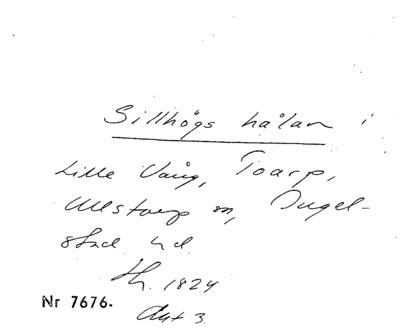 Sillhögs hålan i
Lille Vång, Toarp,
Ullstorp sn, Ingel-
stad hd.
Sk. 1824
Nr 7676.
Akt 3.